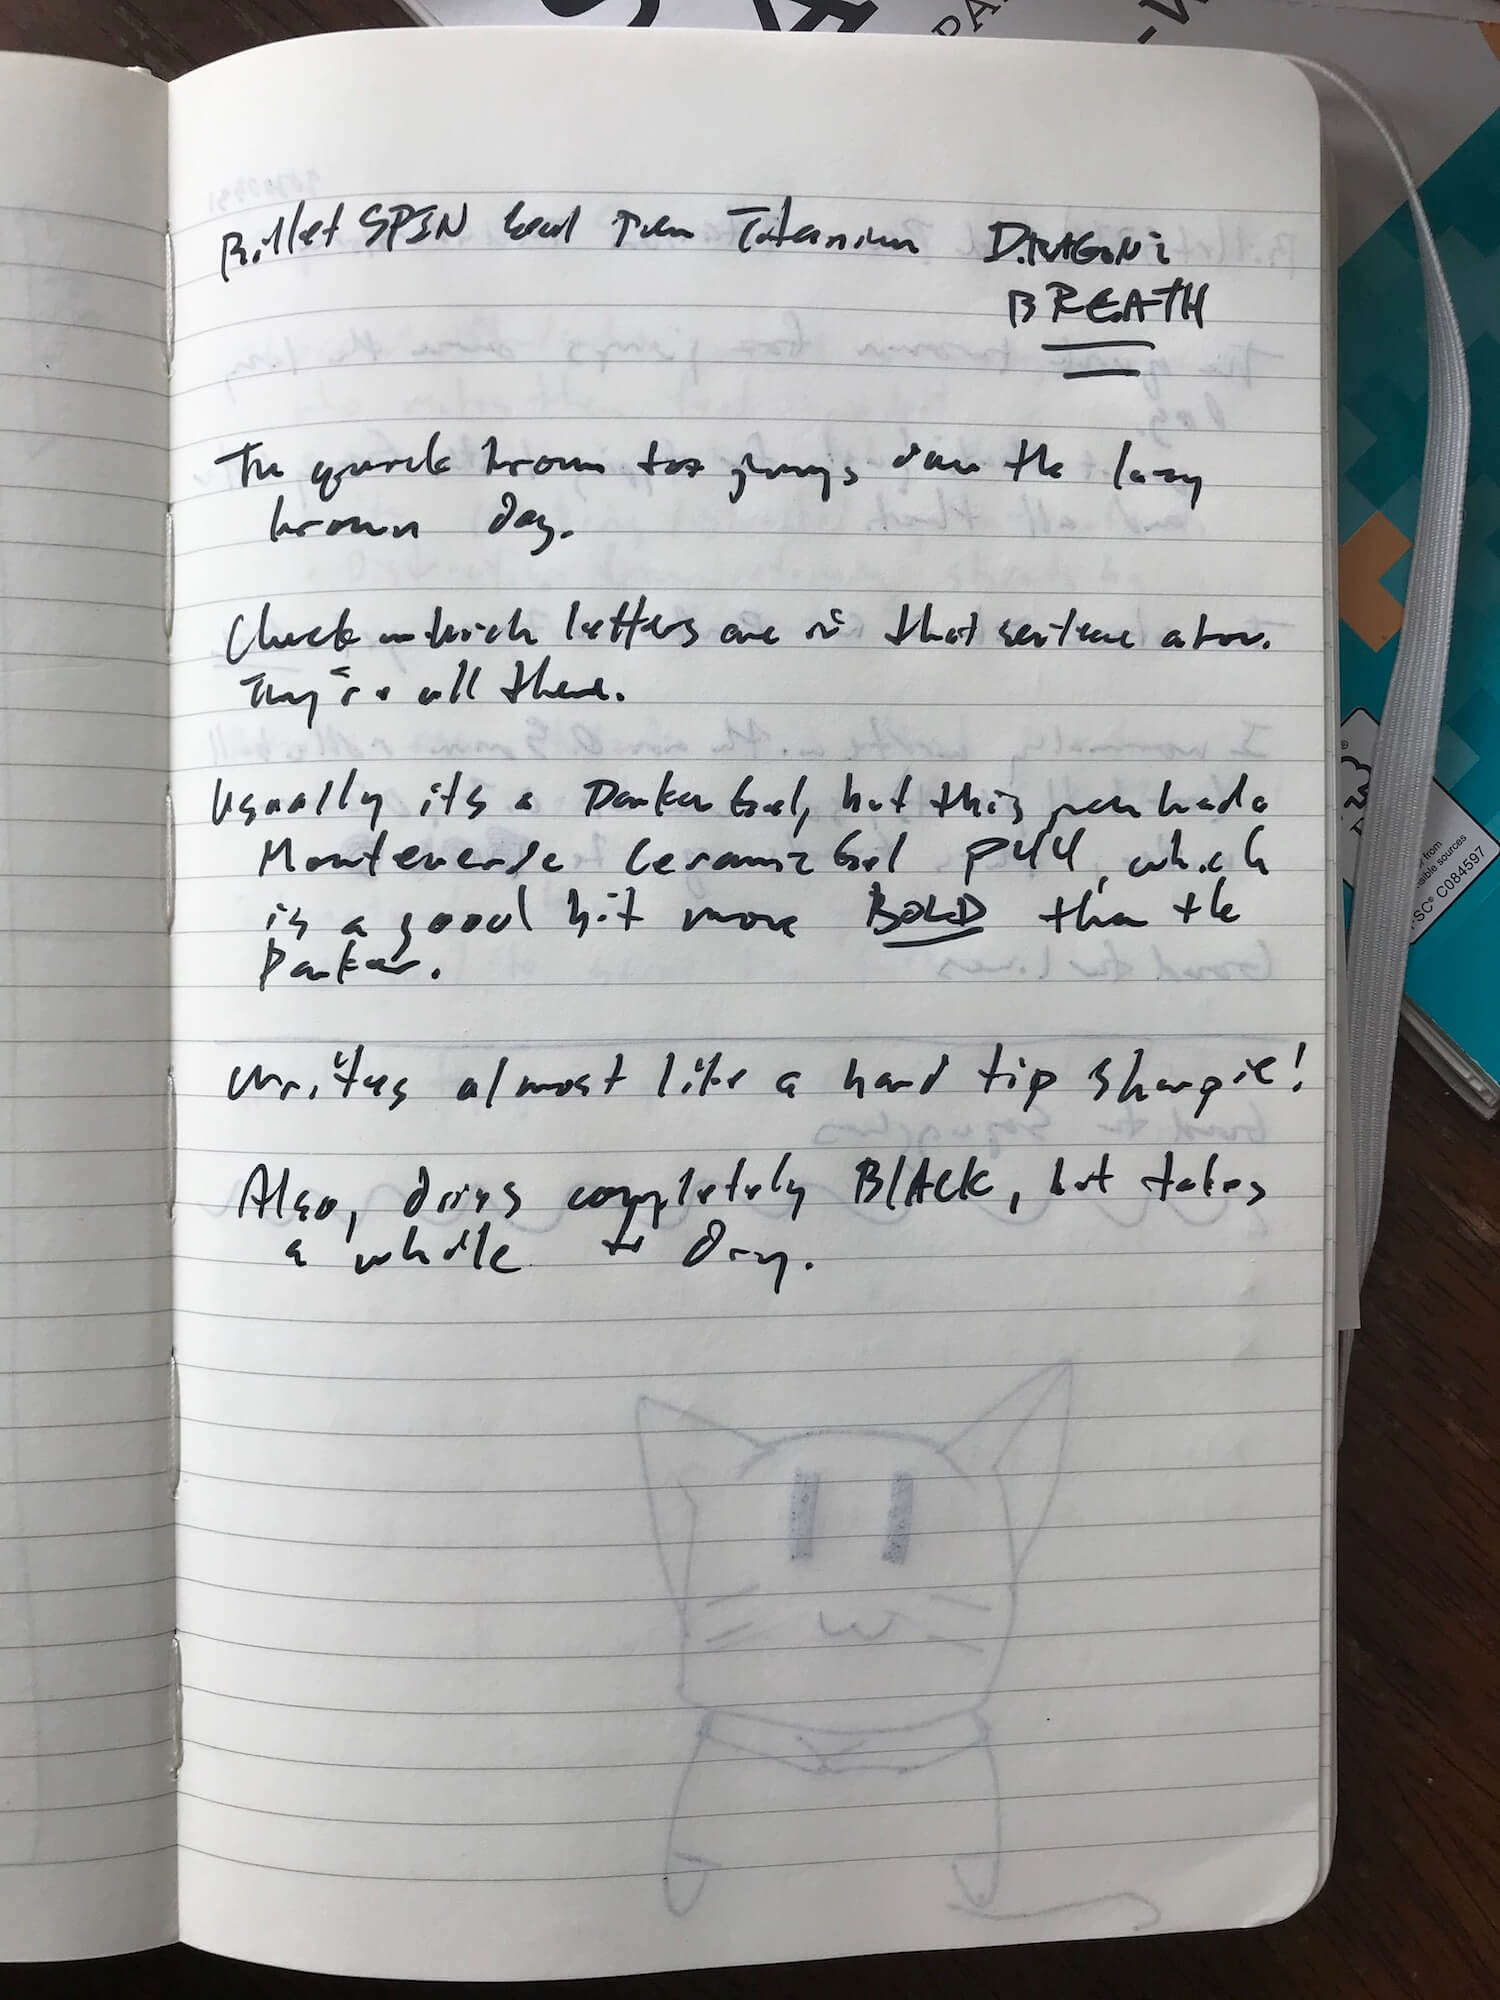 Billet SPIN Gen1 Pen Titanium DRAGON'S
BREATH
The quick brown fox jumps over the lazy
brown dog.
Check which letters are in that sentence above.
They're all there.
Usually its a Parker Gel, but this pen had a
Monteverde Ceramic Gel P44, which
is a good bit more BOLD than the
Parker.
Writes almost like a hard tip sharpie!
Also, dries completely BLACK, but takes
a while to dry.
from
sible sources
FSC® C084597